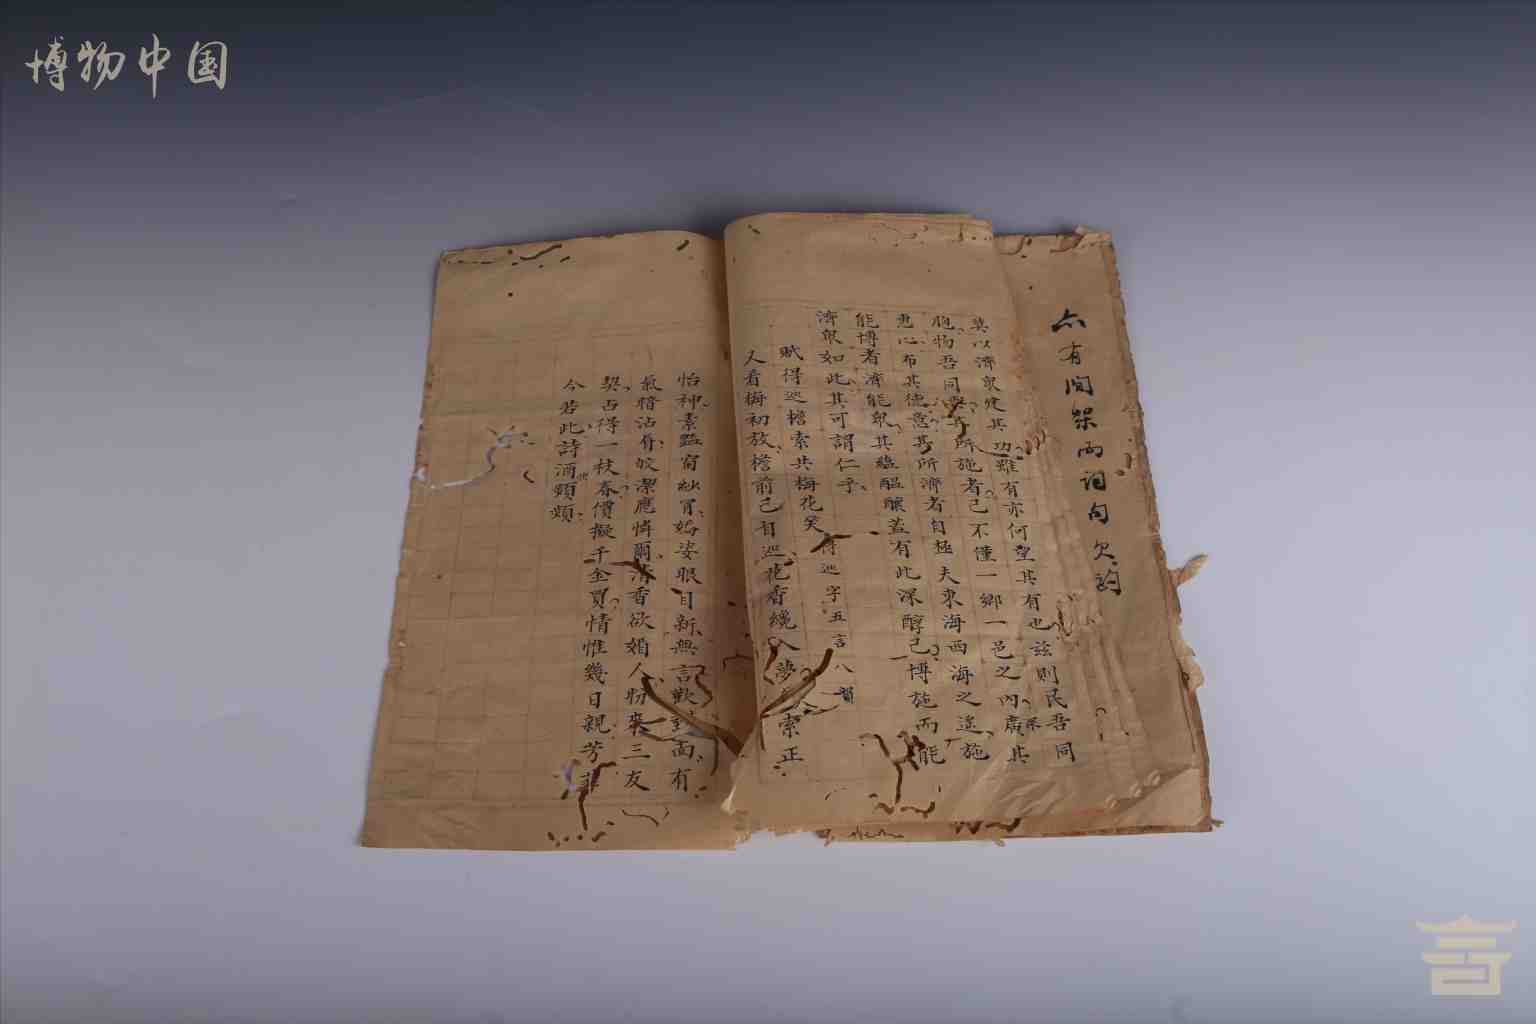 博物中国
亦有間架而詞句欠酌
莫以濟眾建其功雖有亦何望其有也兹則民吾同
胞物吾同與其所施者已不僅一鄉一邑之內廣其
惠心布其德意其所濟者自極夫東海西海之遙施
能博者濟能眾其蘊醞釀蓋有此深醇已博施而能
濟眾如此其可謂仁乎
賦得巡檐索共梅花笑得巡字五言八韻
又看梅初放檐前已有巡花香纔入夢索正
怡神素豔窗紗冒嬌姿眼目新無言歡對面有
氣暗沾身皎潔應憐爾清香欲媚人盼來三友
契占得一枝春價擬千金買情惟幾日親芳菲
今若此詩酒興頻頻